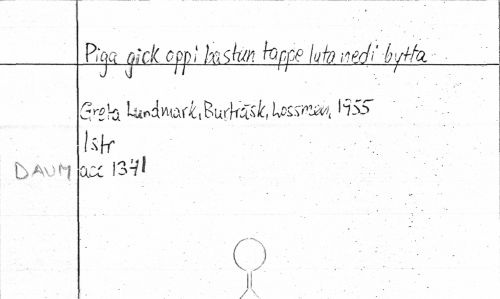 Piga gick oppi bastun tappe luta nedi bytta
Greta Lundmark, Burträsk, Lossmen, 1955
1str
DAUM acc 1371